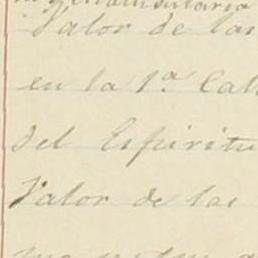 Valor de las
en la 1ª Call
del Espiritu
Valor de las